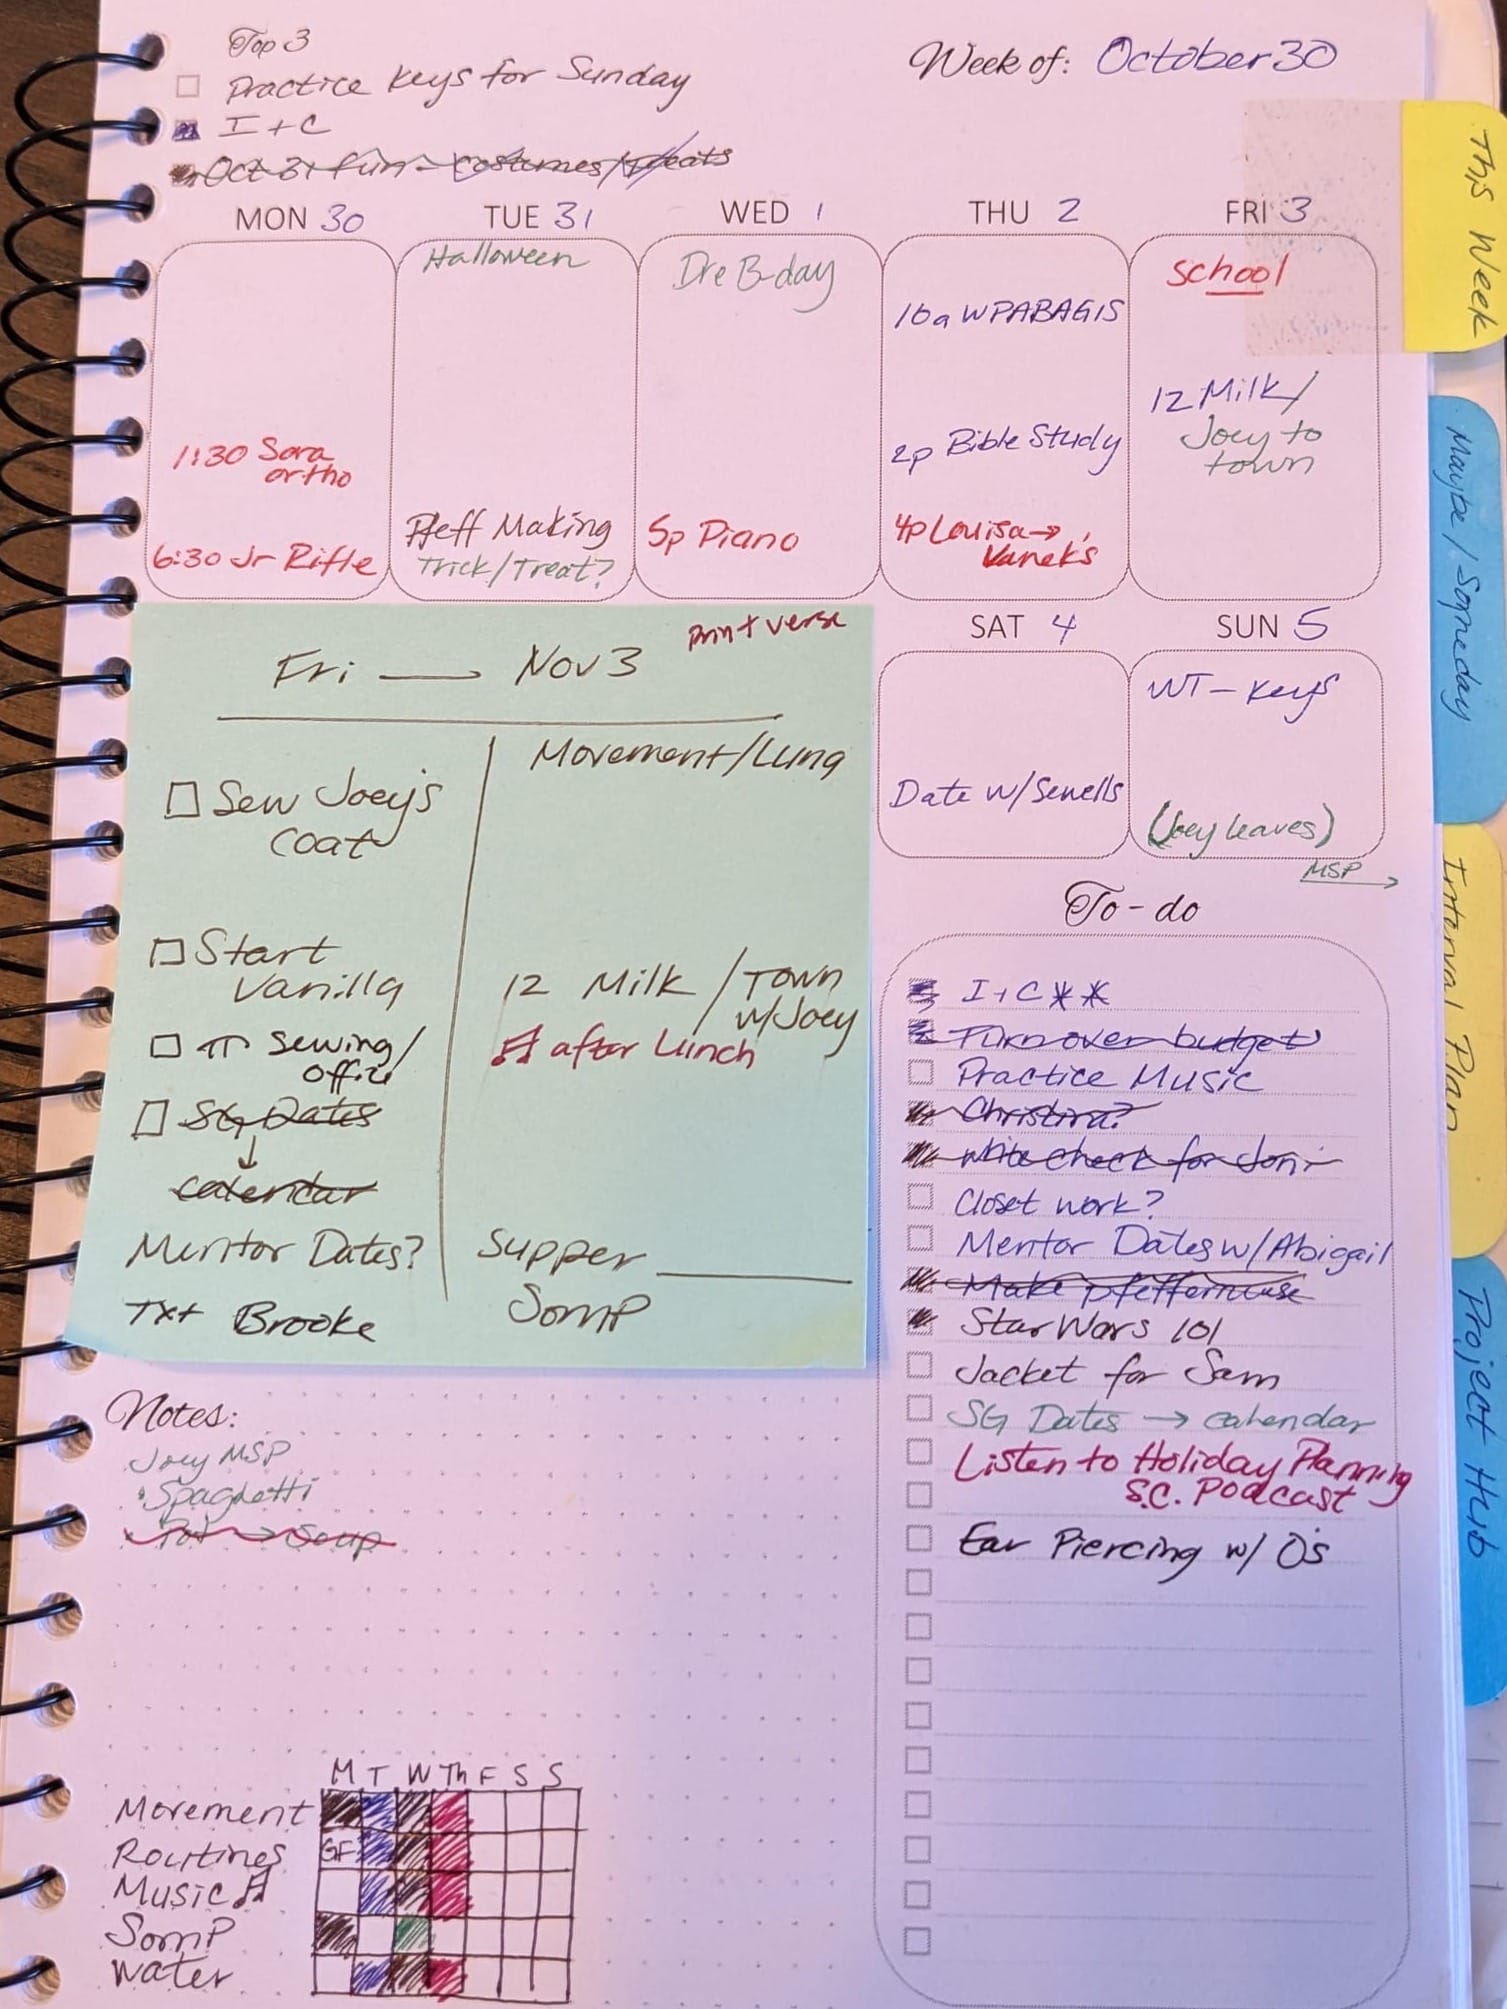 Top 3
Practice Keys for Sunday
I + C
Oct 31 fun - costumes/treats
Week of: October 30
MON 30
1:30 Sara
ortho
6:30 Jr Rifle
TUE 31
Halloween
Pfeff Making
Trick/Treat?
WED 1
Dre B-day
5p Piano
THU 2
10a WPABAGIS
2p Bible Study
4p Louisa →
Vanek's
FRI 3
School
12 Milk/
Joey to
town
SAT 4
Date w/Sewells
SUN 5
WT - Keys
(Joey leaves)
MSP →
print verse
Fri — Nov 3
Sew Joey's
coat
Start
Vanilla
Sewing/
office
SG Dates
↓
calendar
Mentor Dates?
Txt Brooke
Movement/Lung
12 Milk / Town
w/Joey
♫ after Lunch
Supper
SomP
Notes:
Joey MSP
Spaghetti
Pot → Soup
M T W Th F S S
Movement
Routines GF
Music ♫
SomP
Water
To-do
I + C **
Turn over budget
Practice Music
Christina?
Write check for Joni
Closet work?
Mentor Dates w/Abigail
Make pfeffernuse
Star Wars 101
Jacket for Sam
SG Dates → calendar
Listen to Holiday Planning
S.C. Podcast
Ear Piercing w/ O's
This Week
Maybe / Someday
Interval Plan
Project Hub